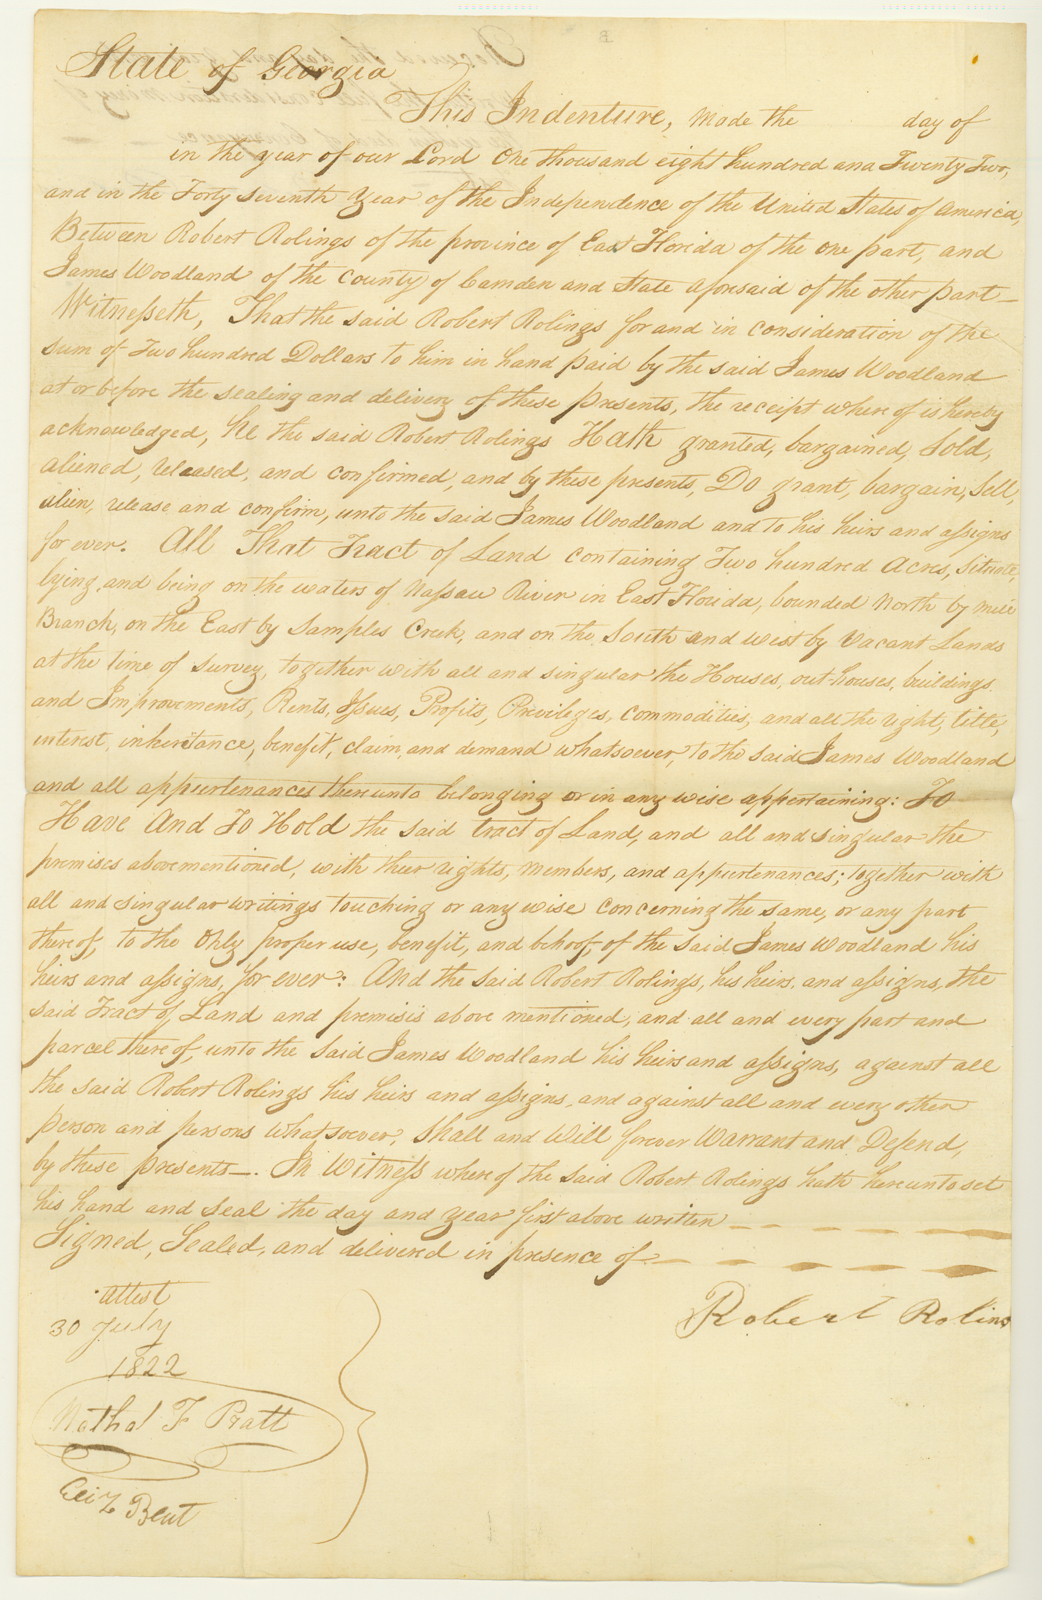 State of Georgia
This Indenture, Made the day of
in the year of our Lord One thousand eight hundred and Twenty Two,
and in the Forty seventh Year of the Independence of the United States of America,
Between Robert Rolings of the province of East Florida of the one part, and
James Woodland of the County of Camden and State aforesaid of the other part—
Witnesseth, That the said Robert Rolings for and in consideration of the
sum of Two hundred Dollars to him in hand paid by the said James Woodland
at or before the sealing and delivery of these presents, the receipt where of is hereby
acknowledged, he the said Robert Rolings Hath granted, bargained, Sold,
aliened, released, and confirmed, and by these presents, Do grant, bargain, Sell,
alien, release and confirm, unto the said James Woodland and to his heirs and assigns
for ever. All That Tract of Land containing Two hundred Acres, situate,
lying, and being on the waters of Nassau River in East Florida, bounded North by Mill
Branch, on the East by Samples Creek, and on the South and west by Vacant Lands
at the time of survey, together with all and singular the Houses, out-houses, buildings
and Improvements, Rents, Issues, Profits, Privileges, commodities, and all the right, title,
interest, inheritance, benefit, claim, and demand whatsoever, to the said James Woodland
and all appurtenances thereunto belonging or in any wise appertaining: To
Have And To Hold the said tract of Land, and all and singular the
premises abovementioned, with their rights, members, and appurtenances; together with
all and singular writings touching or any wise concerning the same, or any part
thereof, to the Only proper use, benefit, and behoof, of the said James Woodland his
heirs and assigns, for ever: And the said Robert Rolings, his heirs, and assigns, the
said Tract of Land and premisis above mentioned, and all and every part and
parcel there of, unto the said James Woodland his heirs and assigns, against all
the said Robert Rolings his heirs and assigns, and against all and every other
person and persons whatsoever, Shall and Will forever Warrant and Defend,
by these presents—. In Witness where of the said Robert Rolings hath hereunto set
his hand and seal the day and year first above written
Signed, Sealed, and delivered in presence of
Attest
30 July
1822
Robert Rolins
Nathal F Pratt
Eliz Bent